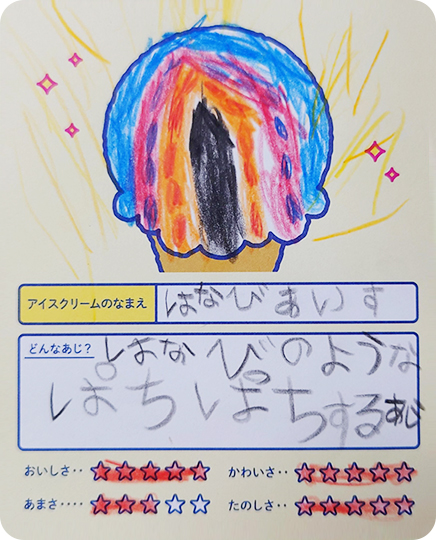 アイスクリームのなまえ はなびあいす
どんなあじ? はなびのような
ぱちぱちするあじ
おいしさ‥ ★★★★★ かわいさ‥ ★★★★★
あまさ‥‥ ★★★☆☆ たのしさ‥ ★★★★★